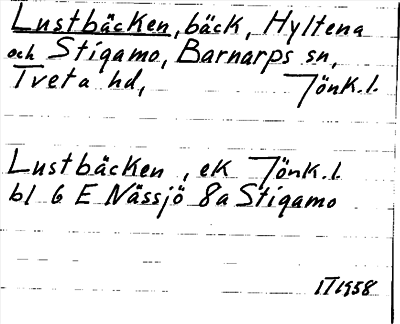 Lustbäcken, bäck, Hyltena
och Stigamo, Barnarps sn,
Tveta hd, Jönk.l.
Lustbäcken, ek Jönk.l.
bl 6 E Nässjö 8a Stigamo
IT1958